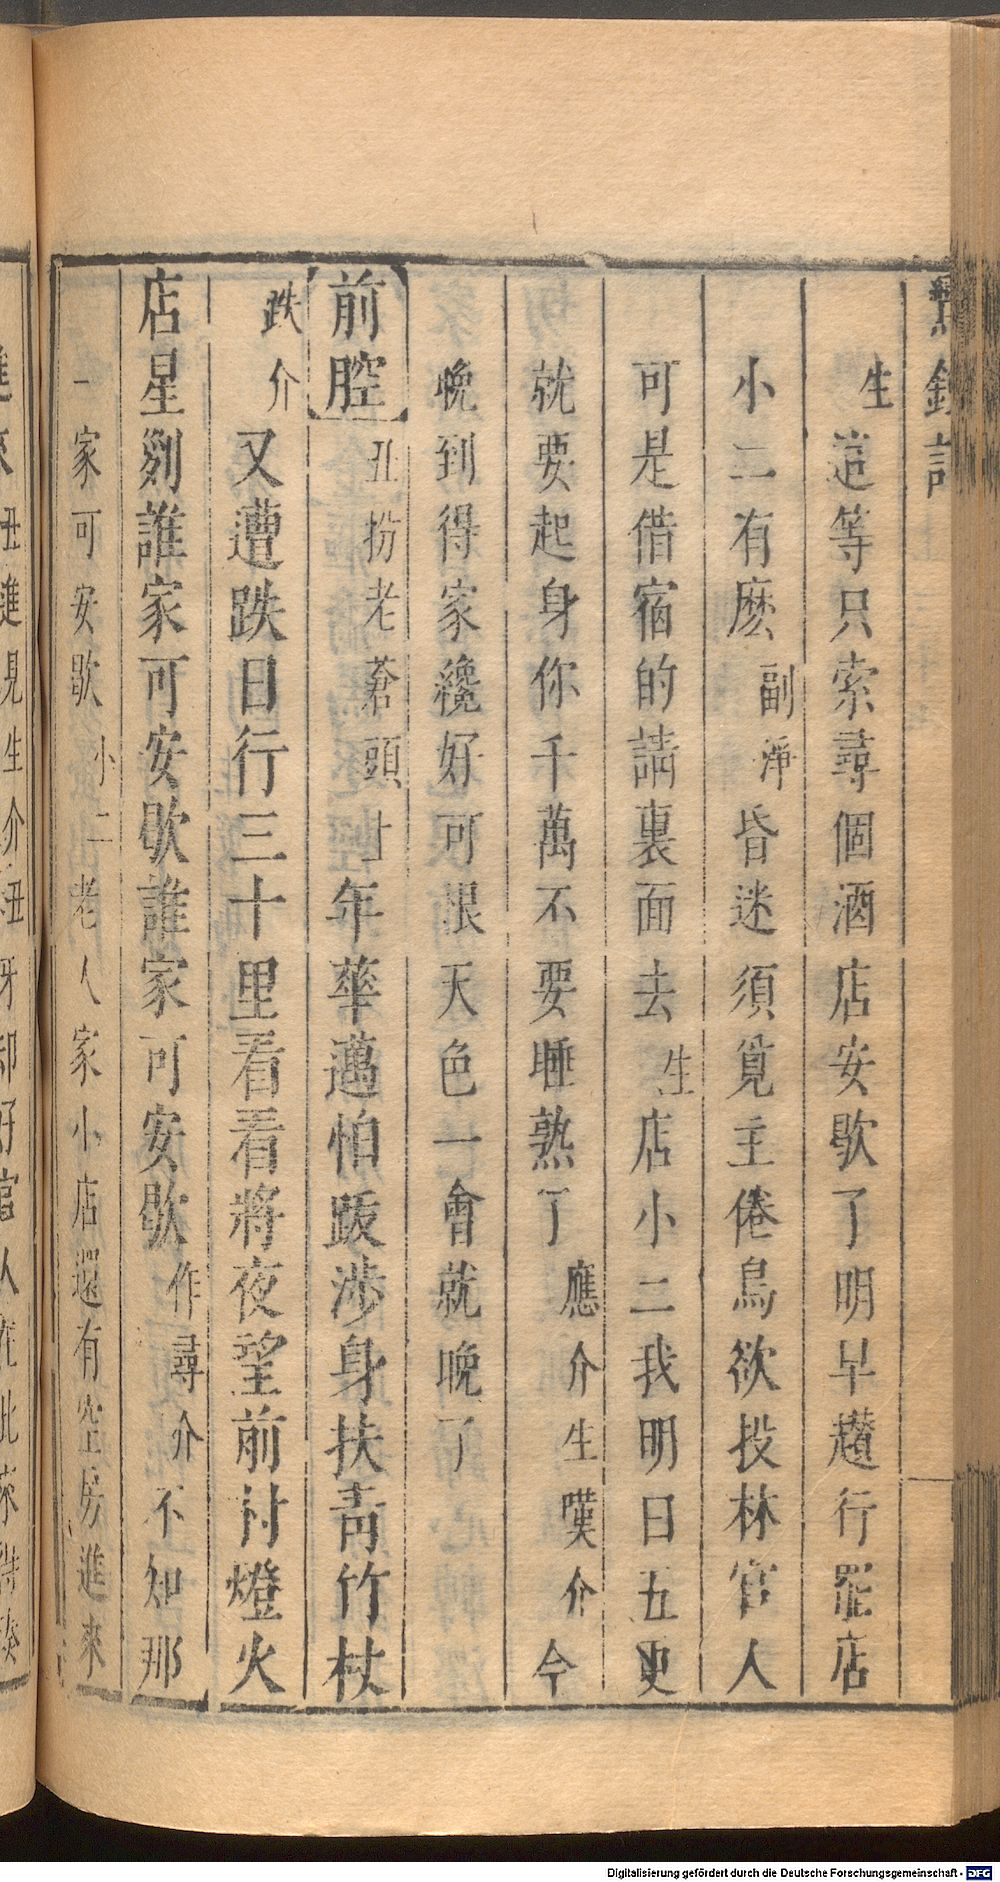 生這等只索尋個酒店安歇了明早趲行罷店
小二有麽副淨昏迷須覓主倦鳥欲投林官人
可是借宿的請裏面去生店小二我明日五更
就要起身你千萬不要睡熟了應介生嘆介今
晚到得家纔好可恨天色一會就晚了
前腔丑扮老蒼頭上年華邁怕跋涉身扶靑竹杖
跌介又遭跌日行三十里看看將夜望前村燈火
店星剡誰家可安歇誰家可安歇作尋介不知那
一家可安歇小二老人家小店還有空房進來
Digitalisierung gefördert durch die Deutsche Forschungsgemeinschaft - DFG